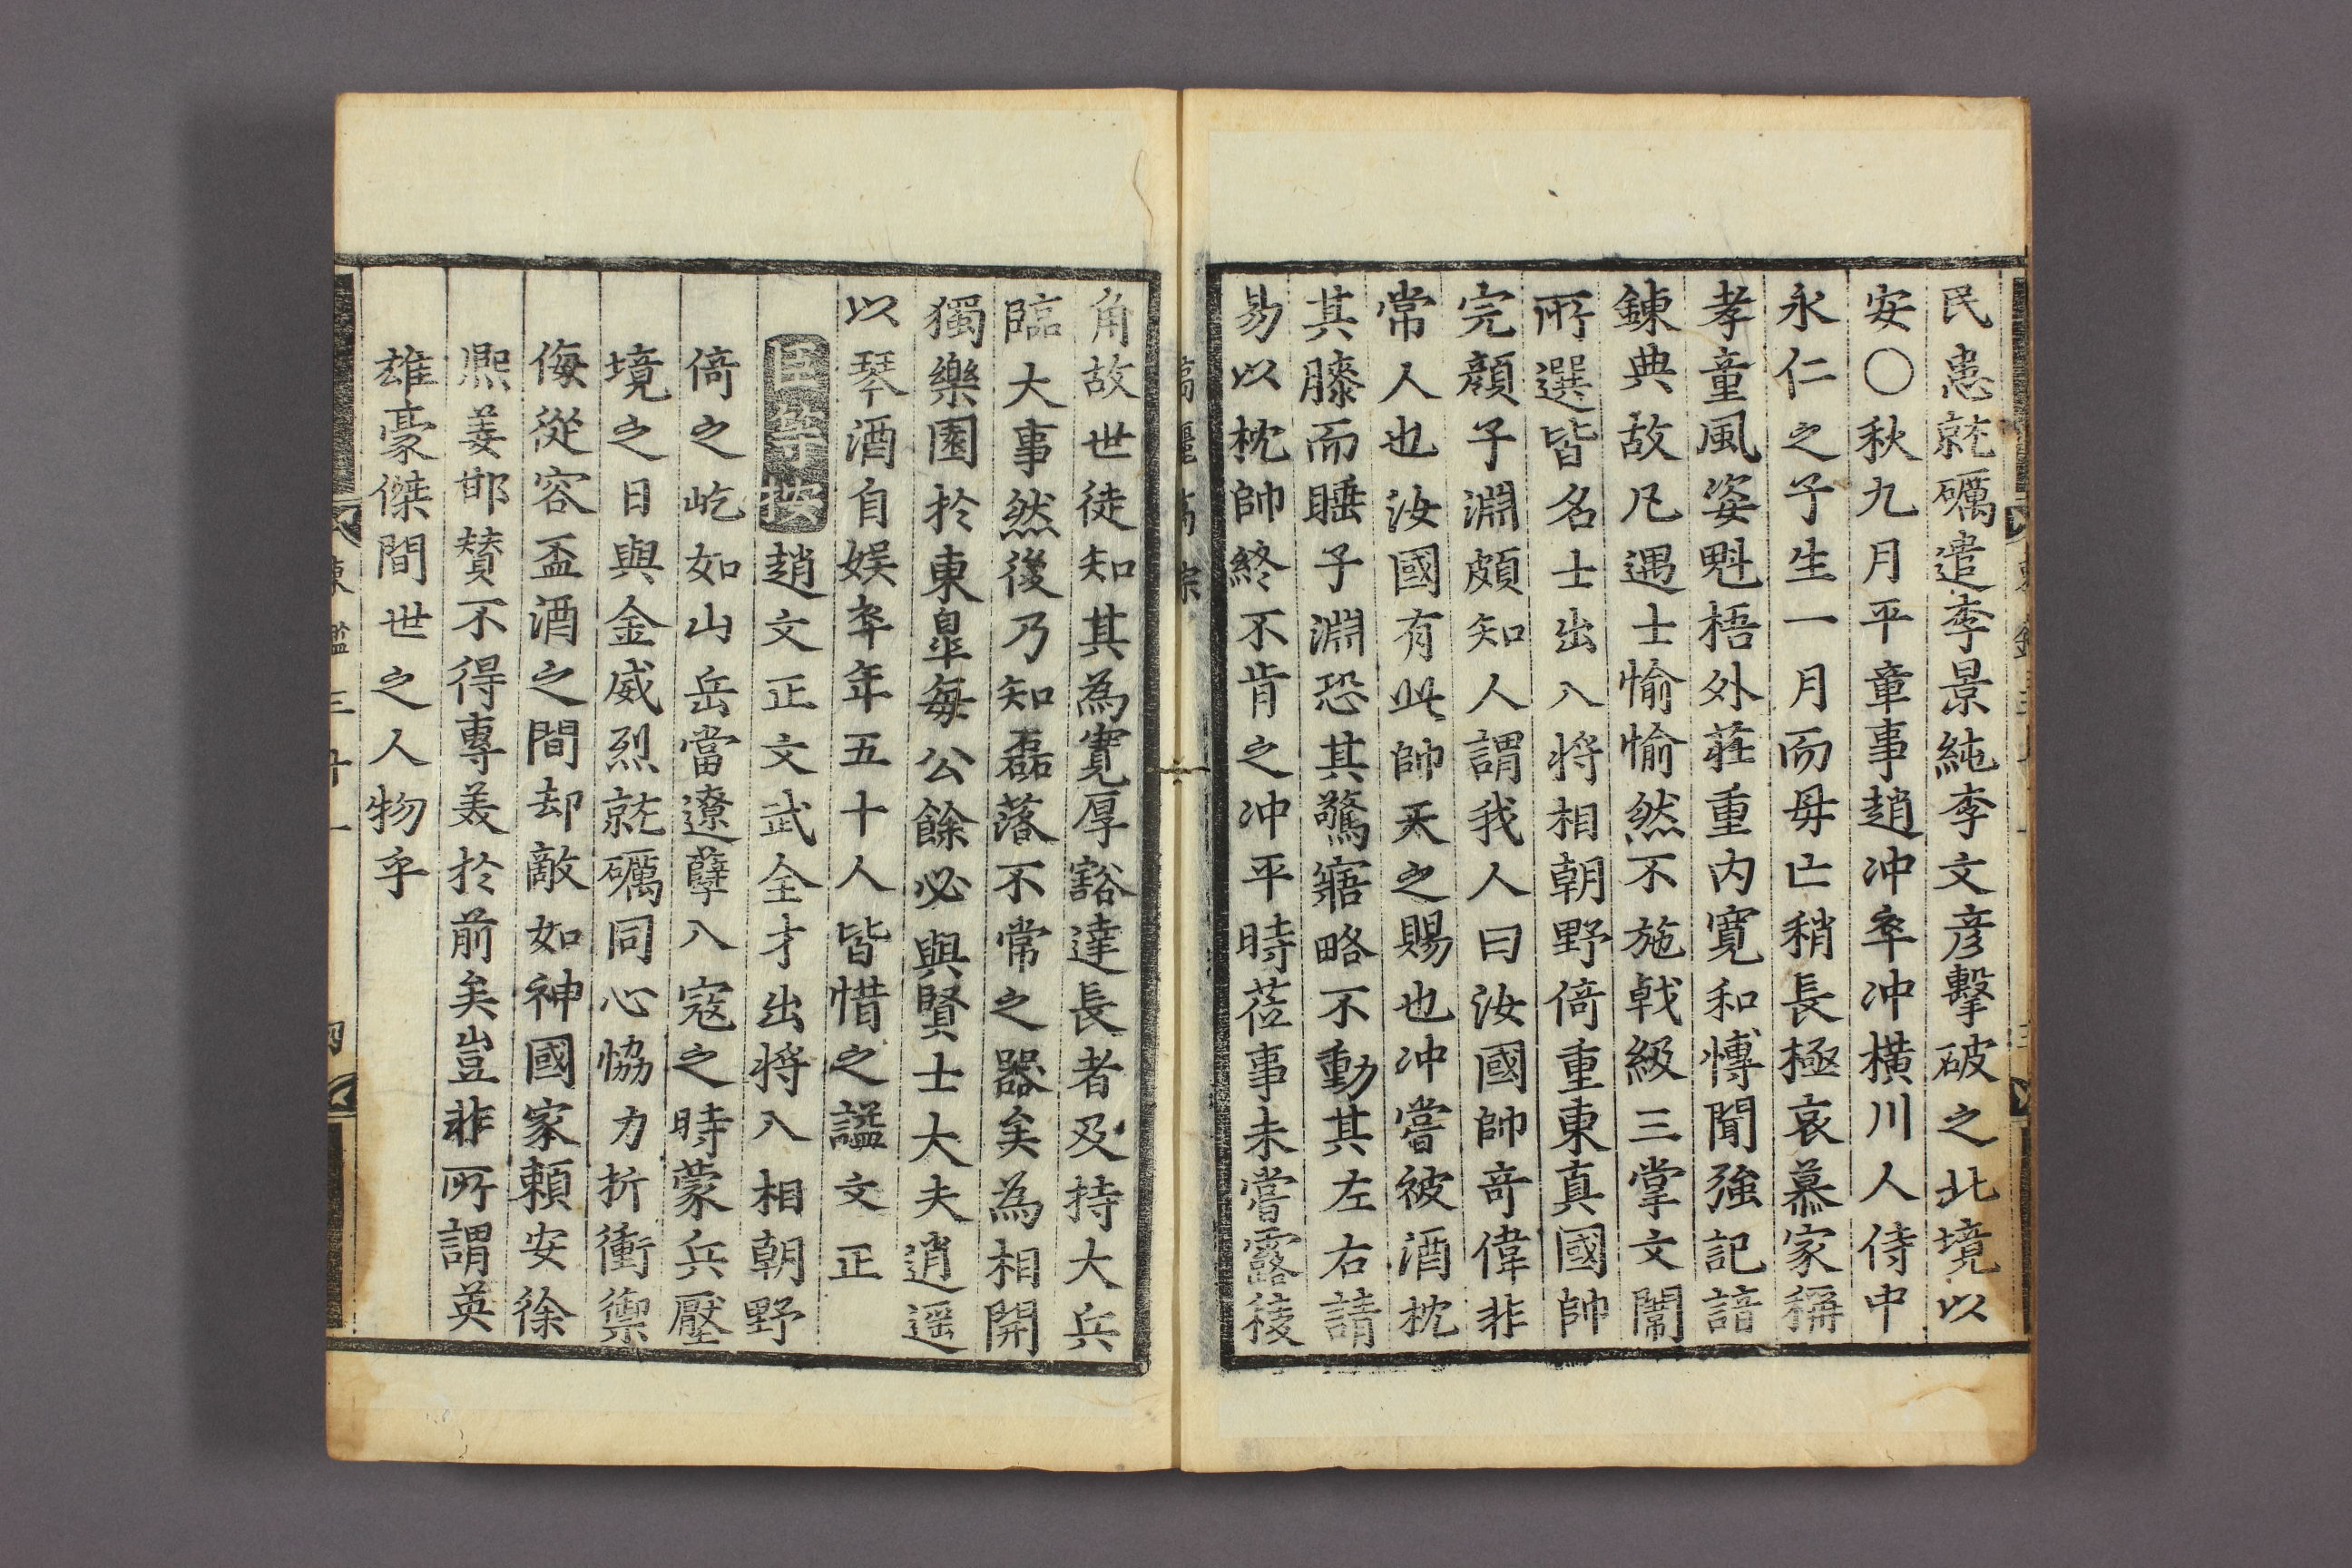 民患就礪遣李景純李文彦擊破之北境以
安○秋九月平章事趙冲卒冲橫川人侍中
永仁之子生一月而母亡稍長極哀慕家稱
孝童風姿魁梧外莊重内寬和愽聞強記諳
鍊典故凡遇士愉愉然不施戟級三掌文闈
所選皆名士出入将相朝野倚重東真國帥
完顏子淵頗知人謂我人曰汝國帥竒偉非
常人也汝國有此帥天之賜也冲嘗被酒枕
其膝而睡子淵恐其驚寤略不動其左右請
易以枕帥終不肯之冲平時莅事未嘗露稜
角故世徒知其為寬厚豁達長者及持大兵
臨大事然後乃知磊落不常之器矣為相開
獨樂園於東皐每公餘必與賢士大夫逍遥
以琴酒自娱卒年五十人皆惜之諡文正
臣等按趙文正文武全才出将入相朝野
倚之屹如山岳當遼孽入寇之時蒙兵壓
境之日與金威烈就礪同心恊力折衝禦
侮從容盃酒之間却敵如神國家頼安徐
熙姜邯賛不得專美於前矣豈非所謂英
雄豪傑間世之人物乎